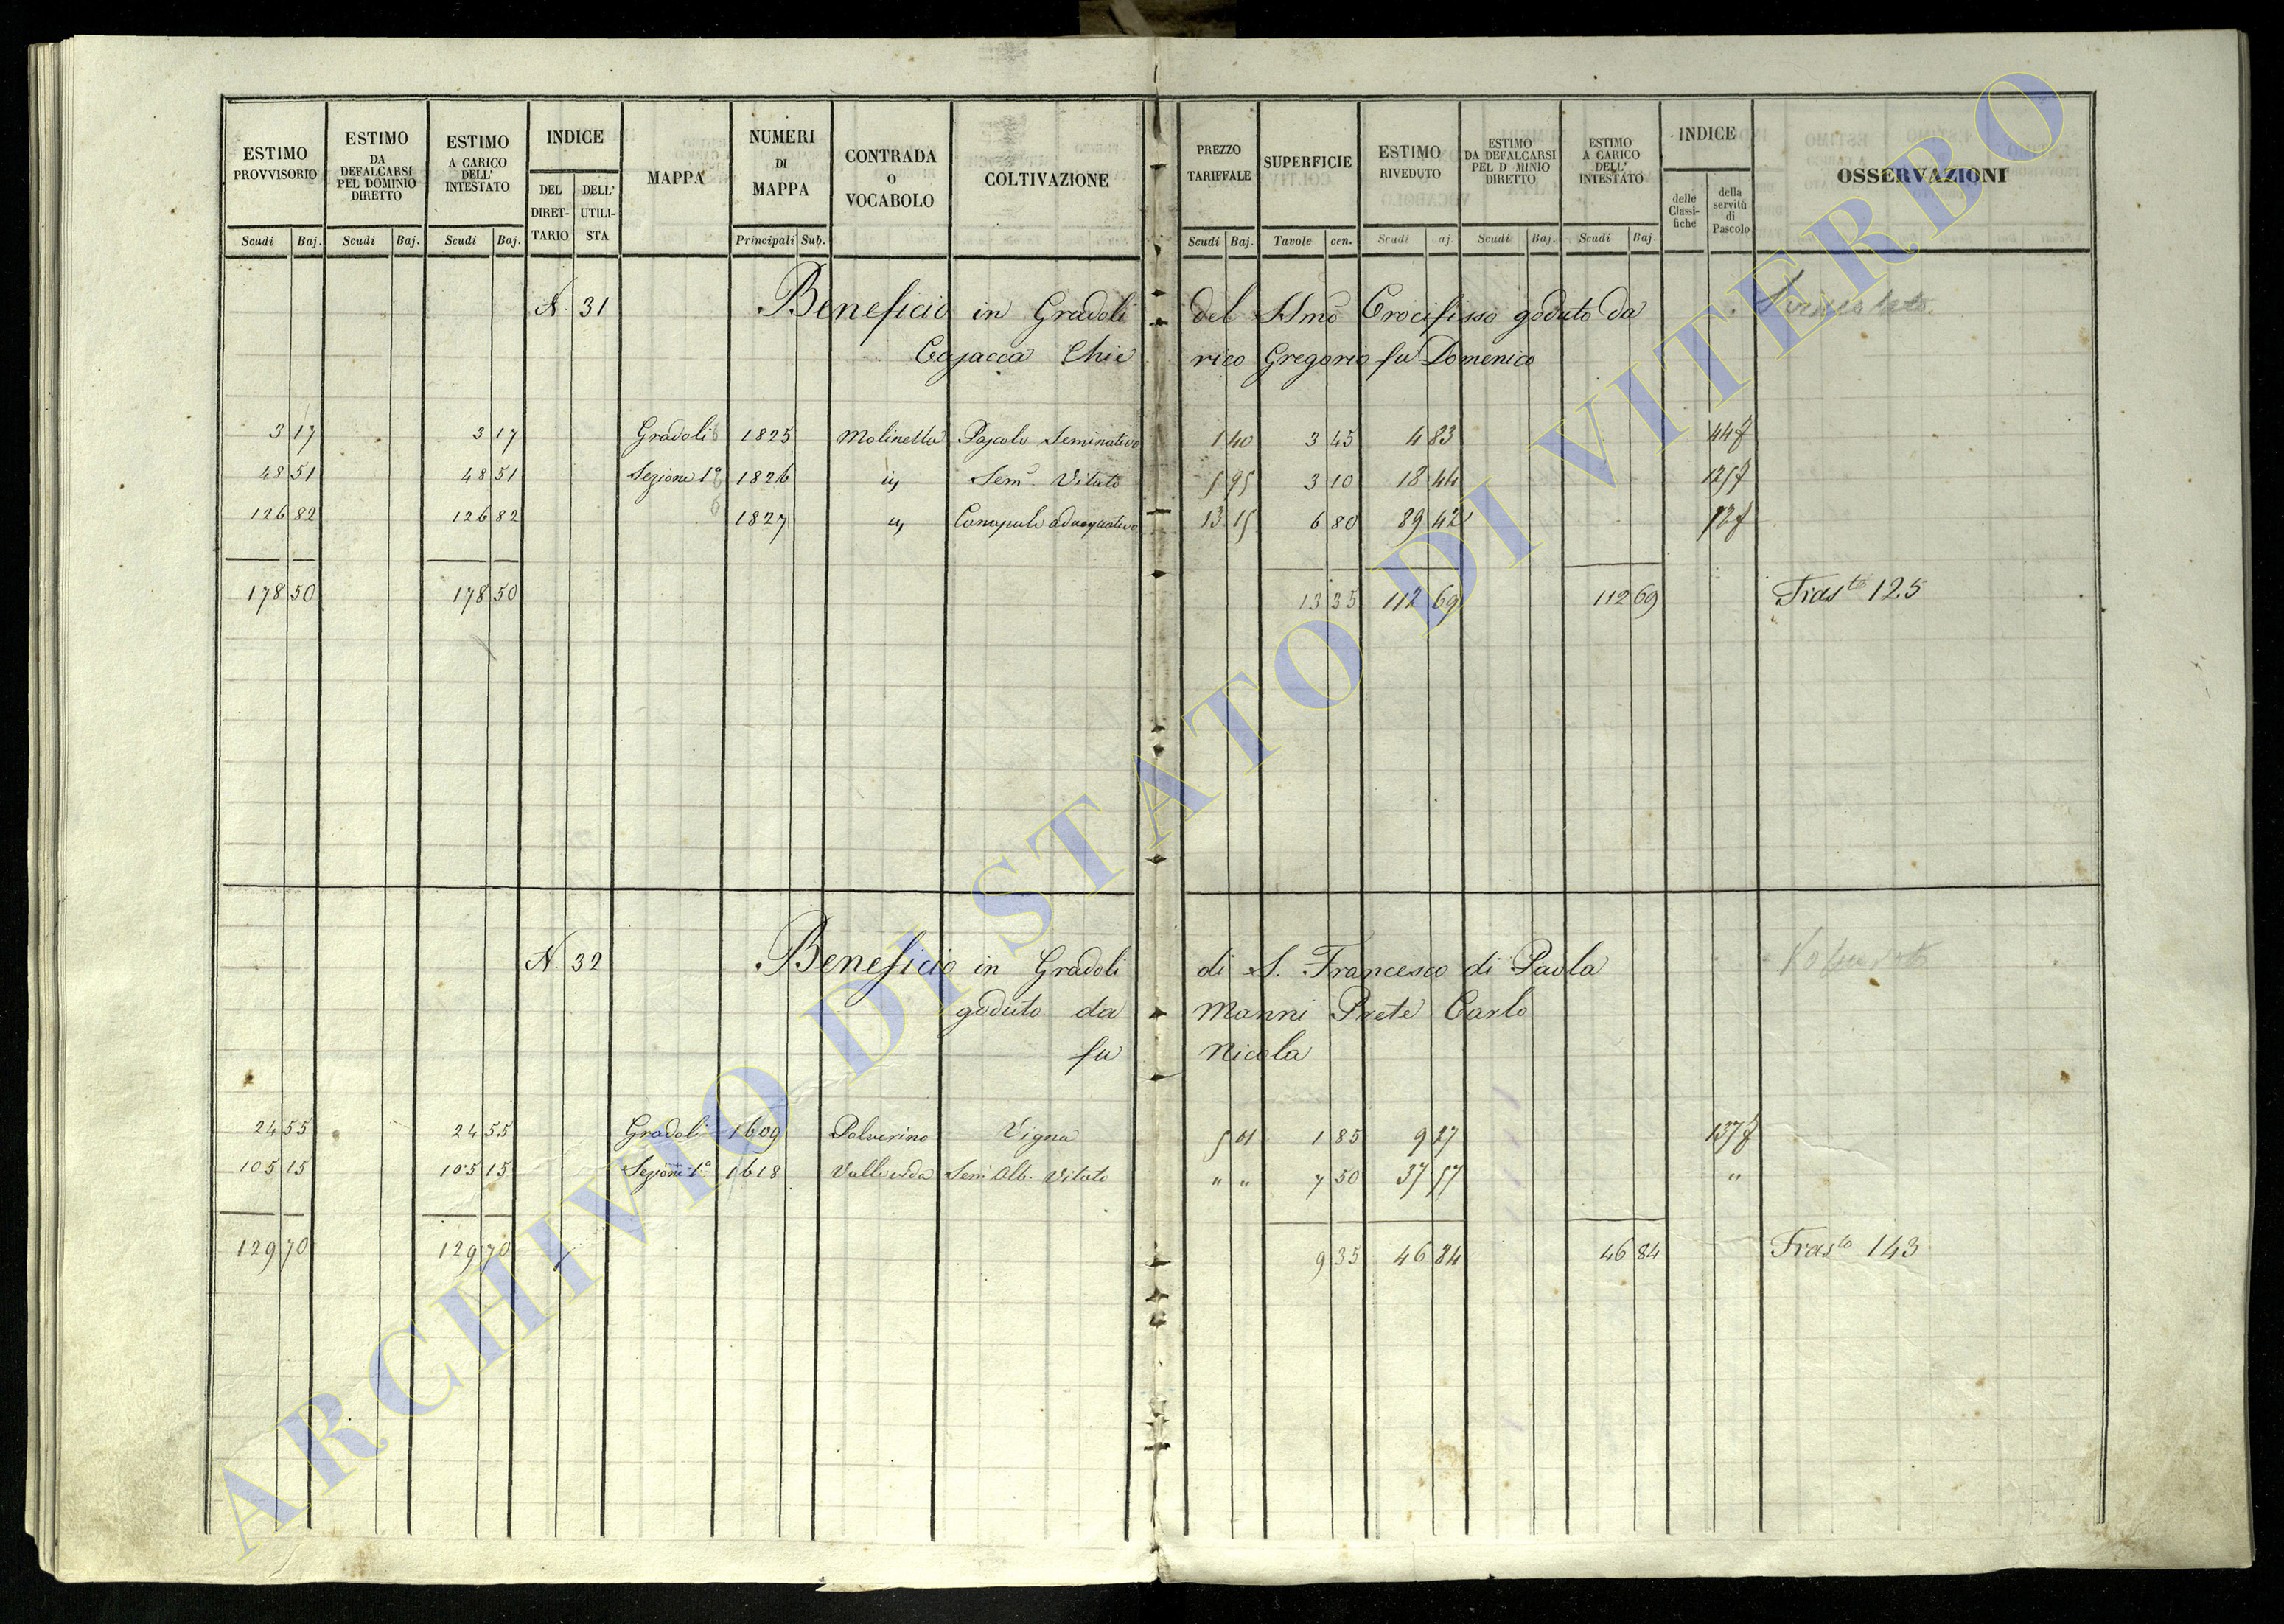 ESTIMO PROVVISORIO | ESTIMO DA DEFALCARSI PEL DOMINIO DIRETTO | ESTIMO A CARICO DELL' INTESTATO | INDICE DEL DIRETTARIO | DELL' UTILISTA | MAPPA | NUMERI DI MAPPA | CONTRADA O VOCABOLO | COLTIVAZIONE | PREZZO TARIFFALE | SUPERFICIE | ESTIMO RIVEDUTO | ESTIMO DA DEFALCARSI PEL D MINIO DIRETTO | ESTIMO A CARICO DELL' INTESTATO | INDICE delle Classifiche | della servitù di Pascolo | OSSERVAZIONI
Scudi | Baj. | Scudi | Baj. | Scudi | Baj. | Principali | Sub. | Scudi | Baj. | Tavole | cen. | Scudi | aj. | Scudi | Baj. | Scudi | Baj
N. 31 Beneficio in Gradoli del SSmo Crocifisso goduto da
Cajacca Chierico Gregorio fu Domenico
3 17 | 3 17 | Gradoli | 1825 | Molinella | Pascolo Seminativo | 1 40 | 3 45 | 4 83 | 44f
48 51 | 48 51 | Sezione 1a | 1826 | iij | Sem. Vitato | 5 95 | 3 10 | 18 44 | 125f
126 82 | 126 82 | 1827 | " | Canapule adacquativo | 13 15 | 6 80 | 89 42 | 12f
178 50 | 178 50 | 13 35 | 112 69 | 112 69 | Trasto 125
N. 32 Beneficio in Gradoli di S. Francesco di Paola
goduto da Manni Prete Carlo
fu Nicola
24 55 | 24 55 | Gradoli | 1609 | Polverino | Vigna | 5 01 | 1 85 | 9 27 | 137f
105 15 | 105 15 | Sezione 1a | 1618 | Sem Alb. Vitato | " " | 7 50 | 37 57 | "
129 70 | 129 70 | 9 35 | 46 84 | 46 84 | Trasto 143
ARCHIVIO DI STATO DI VITERBO